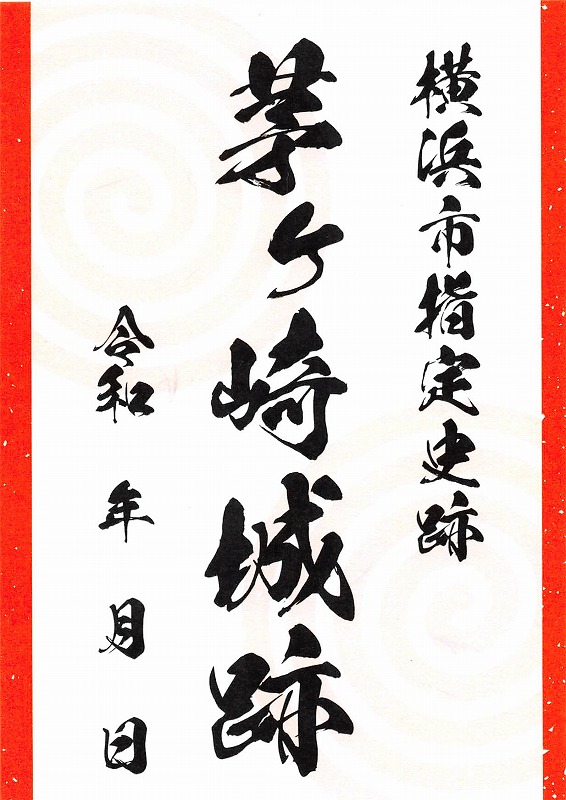 横浜市指定史跡
茅ヶ崎城跡
令和 年 月 日